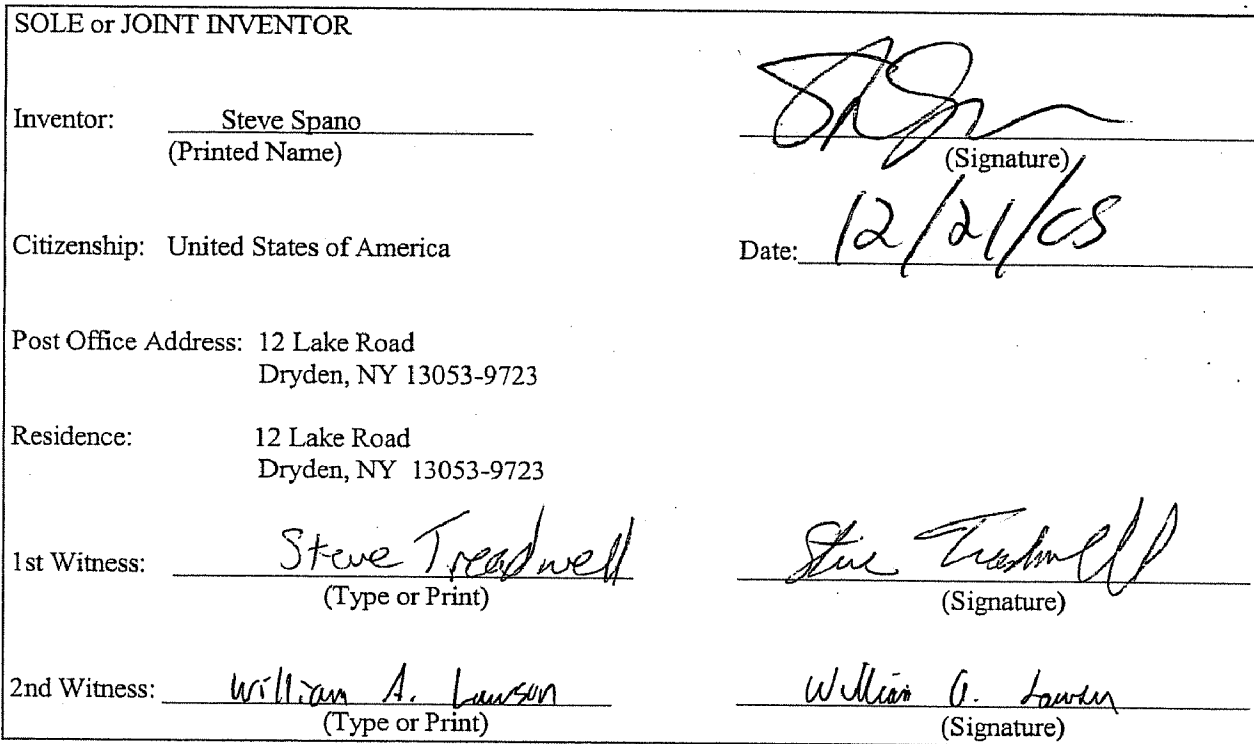 SOLE or JOINT INVENTOR
Inventor: Steve Spano
(Printed Name) (Signature)
Citizenship: United States of America Date: 12/21/05
Post Office Address: 12 Lake Road
Dryden, NY 13053-9723
Residence: 12 Lake Road
Dryden, NY 13053-9723
1st Witness: Steve Treadwell Steve Treadwell
(Type or Print) (Signature)
2nd Witness: William A. Lawson William A. Lawson
(Type or Print) (Signature)